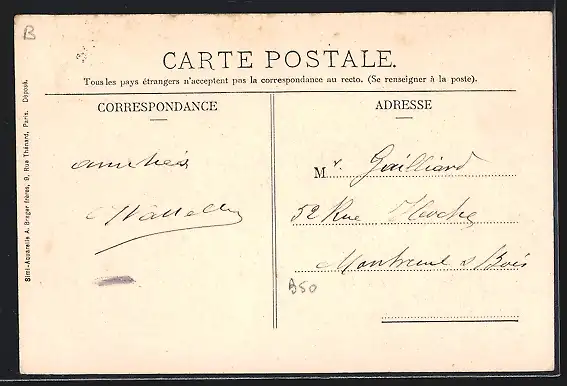 B
CARTE POSTALE.
Tous les pays étrangers n'acceptent pas la correspondance au recto. (Se renseigner à la poste).
CORRESPONDANCE
ADRESSE
amitiés
Mr. Gailliard
52 Rue Hoche
Montreuil s Bois
B50
Simi-Aquarelle A. Breger frères, 9, Rue Thénard, Paris. Déposé.